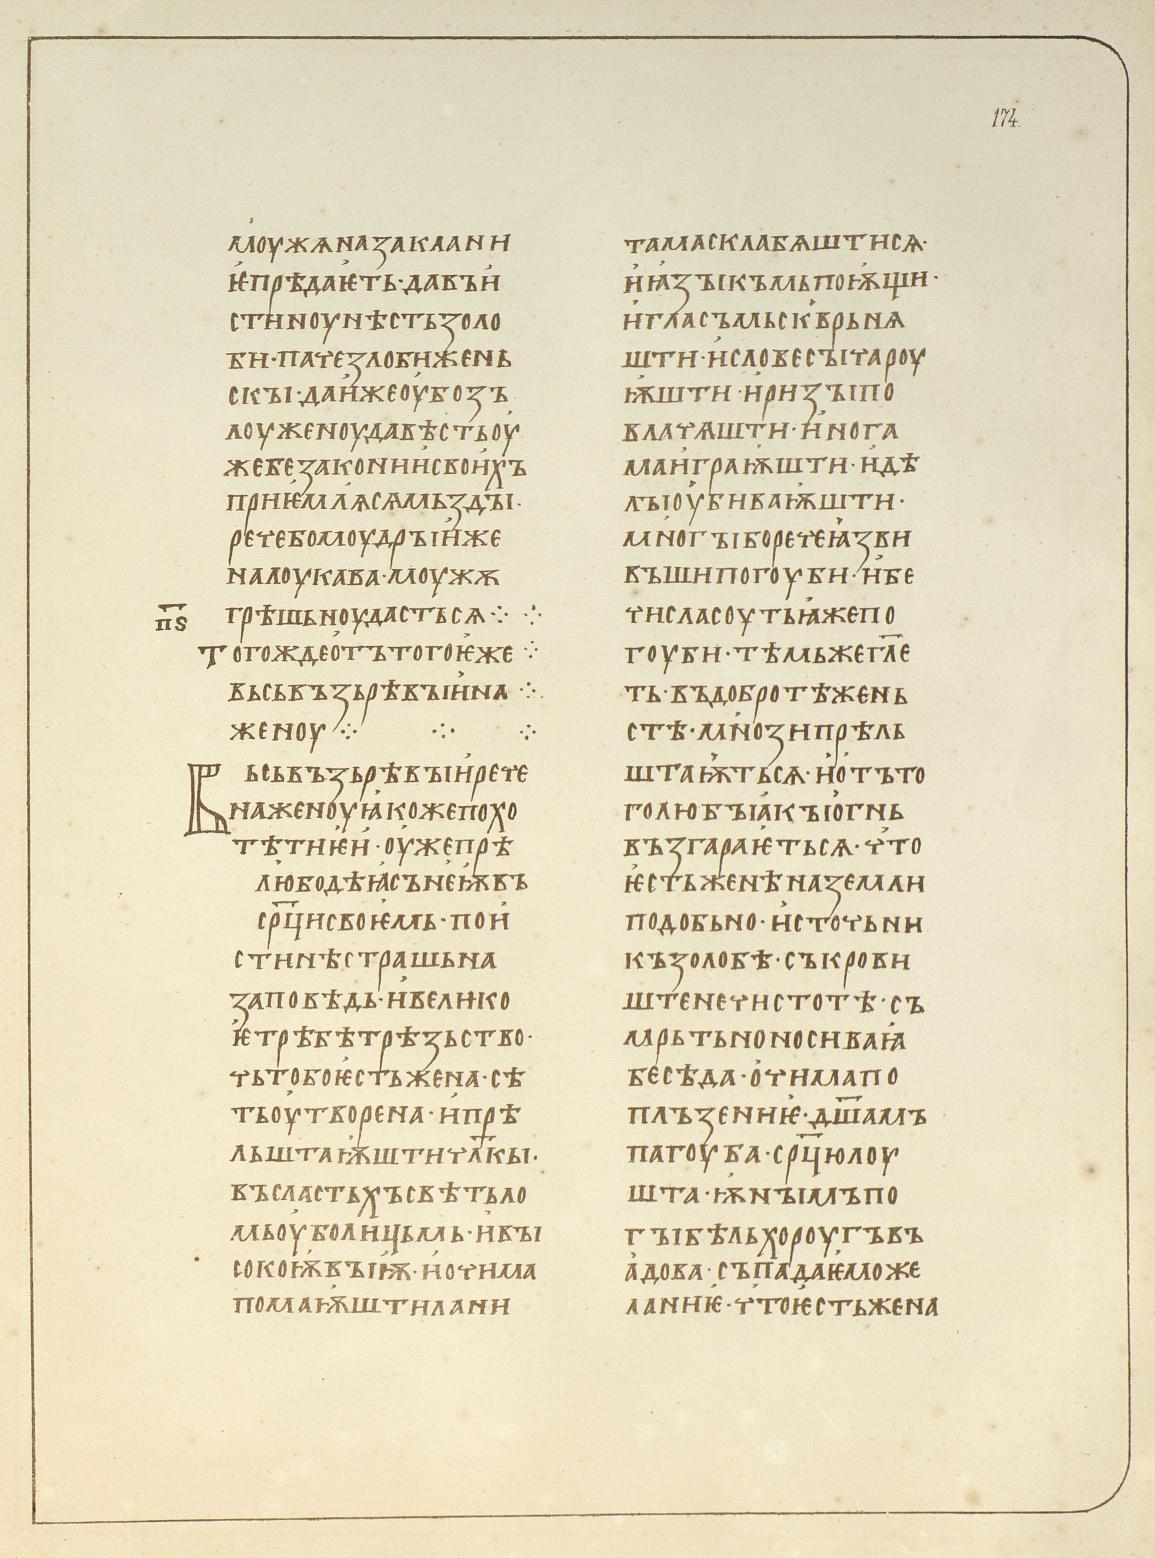 174.
моужѧназаклани
ѥпрѣдаѥть·давъи
стиноунѣстьзоло
би·патезлобижень
скꙑ·даижеоубозъ
лоуженоудавѣстьоу
жебезаконииисвоихъ
приѥмлѧсѧмьздꙑ·
речебомоудрꙑиже
налоукава·моужѫ
пѕ
грѣшьноудастьсѧ⁘ ⁘
тогождеотътогоѥже ⁘
вьсьвъзьрѣвꙑина ⁘
женоу ⁘ ⁘ ⁘
Вьсьвъзьрѣвꙑирече
наженоуꙗкожепохо
тѣтиѥи·оужепрѣ
любодѣꙗсънеѭвъ
срцисвоѥмь·пои
стинѣстрашьна
заповѣдь·ивелико
ѥтрѣбѣтрѣзьство·
чьтобоѥстьжена·сѣ
тьоутворена·ипрѣ
льштаѭштичлкы·
въсластьхъсвѣтьло
мьоуболицьмь·ивꙑ
сокоѭвꙑѭ·иочима
помаѭштилани
тамасклабѧштисѧ·
иꙗзꙑкъмьпоѭщи·
игласъмьсквръня
шти·исловесꙑчароу
ѭшти·иризꙑпо
влачѧшти·инога
маиграѭшти·идѣ
лꙑоубиваѭшти·
многꙑборечеꙗзви
въшипогоуби·ибе
числасоутьꙗжепо
гоуби·тѣмьжегле
ть·въдобротѣжень
стѣ·мнозипрѣль
штаѭтьсѧ·иотъто
голюбꙑакꙑогнь
възгараѥтьсѧ·что
ѥстьженѣназемли
подобьно·источьни
къзолобѣ·съкрови
штенечистотѣ·съ
мрьтьноносиваꙗ
бесѣда·очимапо
плъзениѥ·дшамъ
пагоуба·срцюлоу
шта·ѭнꙑмъпо
гꙑбѣльхороугъвъ
адова·съпадаѥможе
ланиѥ·чтоѥстьжена